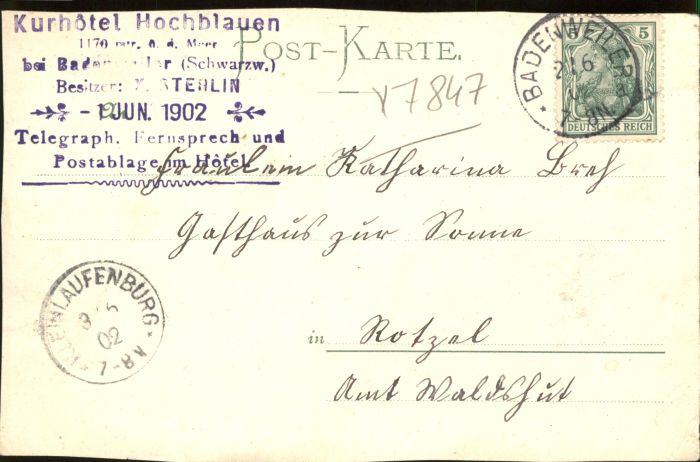 Kurhôtel Hochblauen
1170 mtr. ü. d. Meer
bei Badenweiler (Schwarzw.)
Besitzer: STEHLIN
- 1 JUN. 1902
Telegraph, Fernsprech und
Postablage im Hôtel
POST-KARTE.
v7847
BADENWEILER
2 6
7-8N.
5
DEUTSCHES REICH
Fräulein Katharina Breh
Gasthaus zur Sonne
in Rotzel
Amt Waldshut
KLEINLAUFENBURG
3 6
02
7-8N